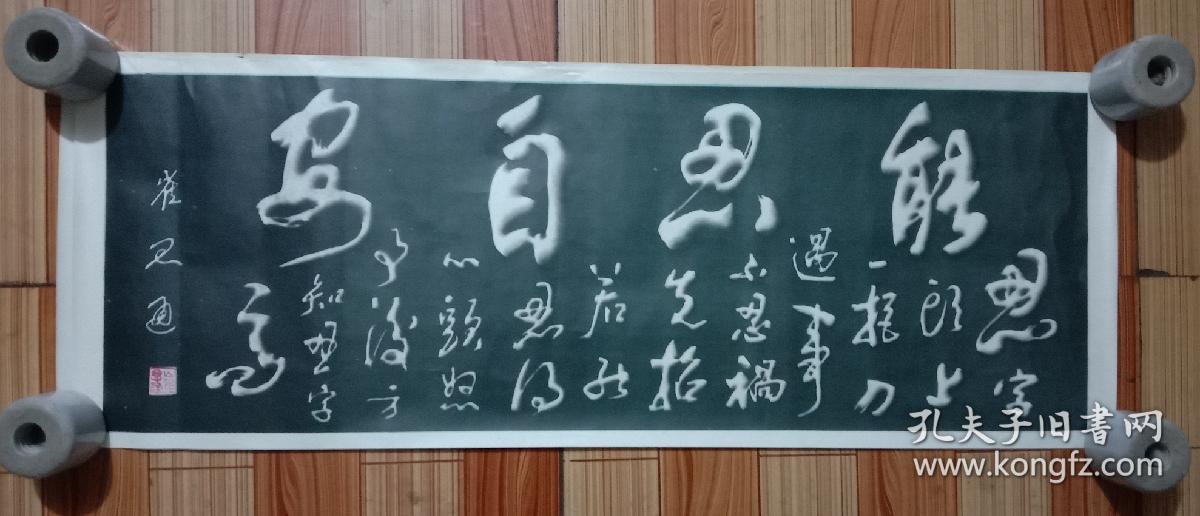 能忍自安
忍字
头上
一把刀
遇事
不忍祸
先招
若能
忍得
心頭怒
事後方
知忍字
高
崔思通
孔夫子旧書网
www.kongfz.com